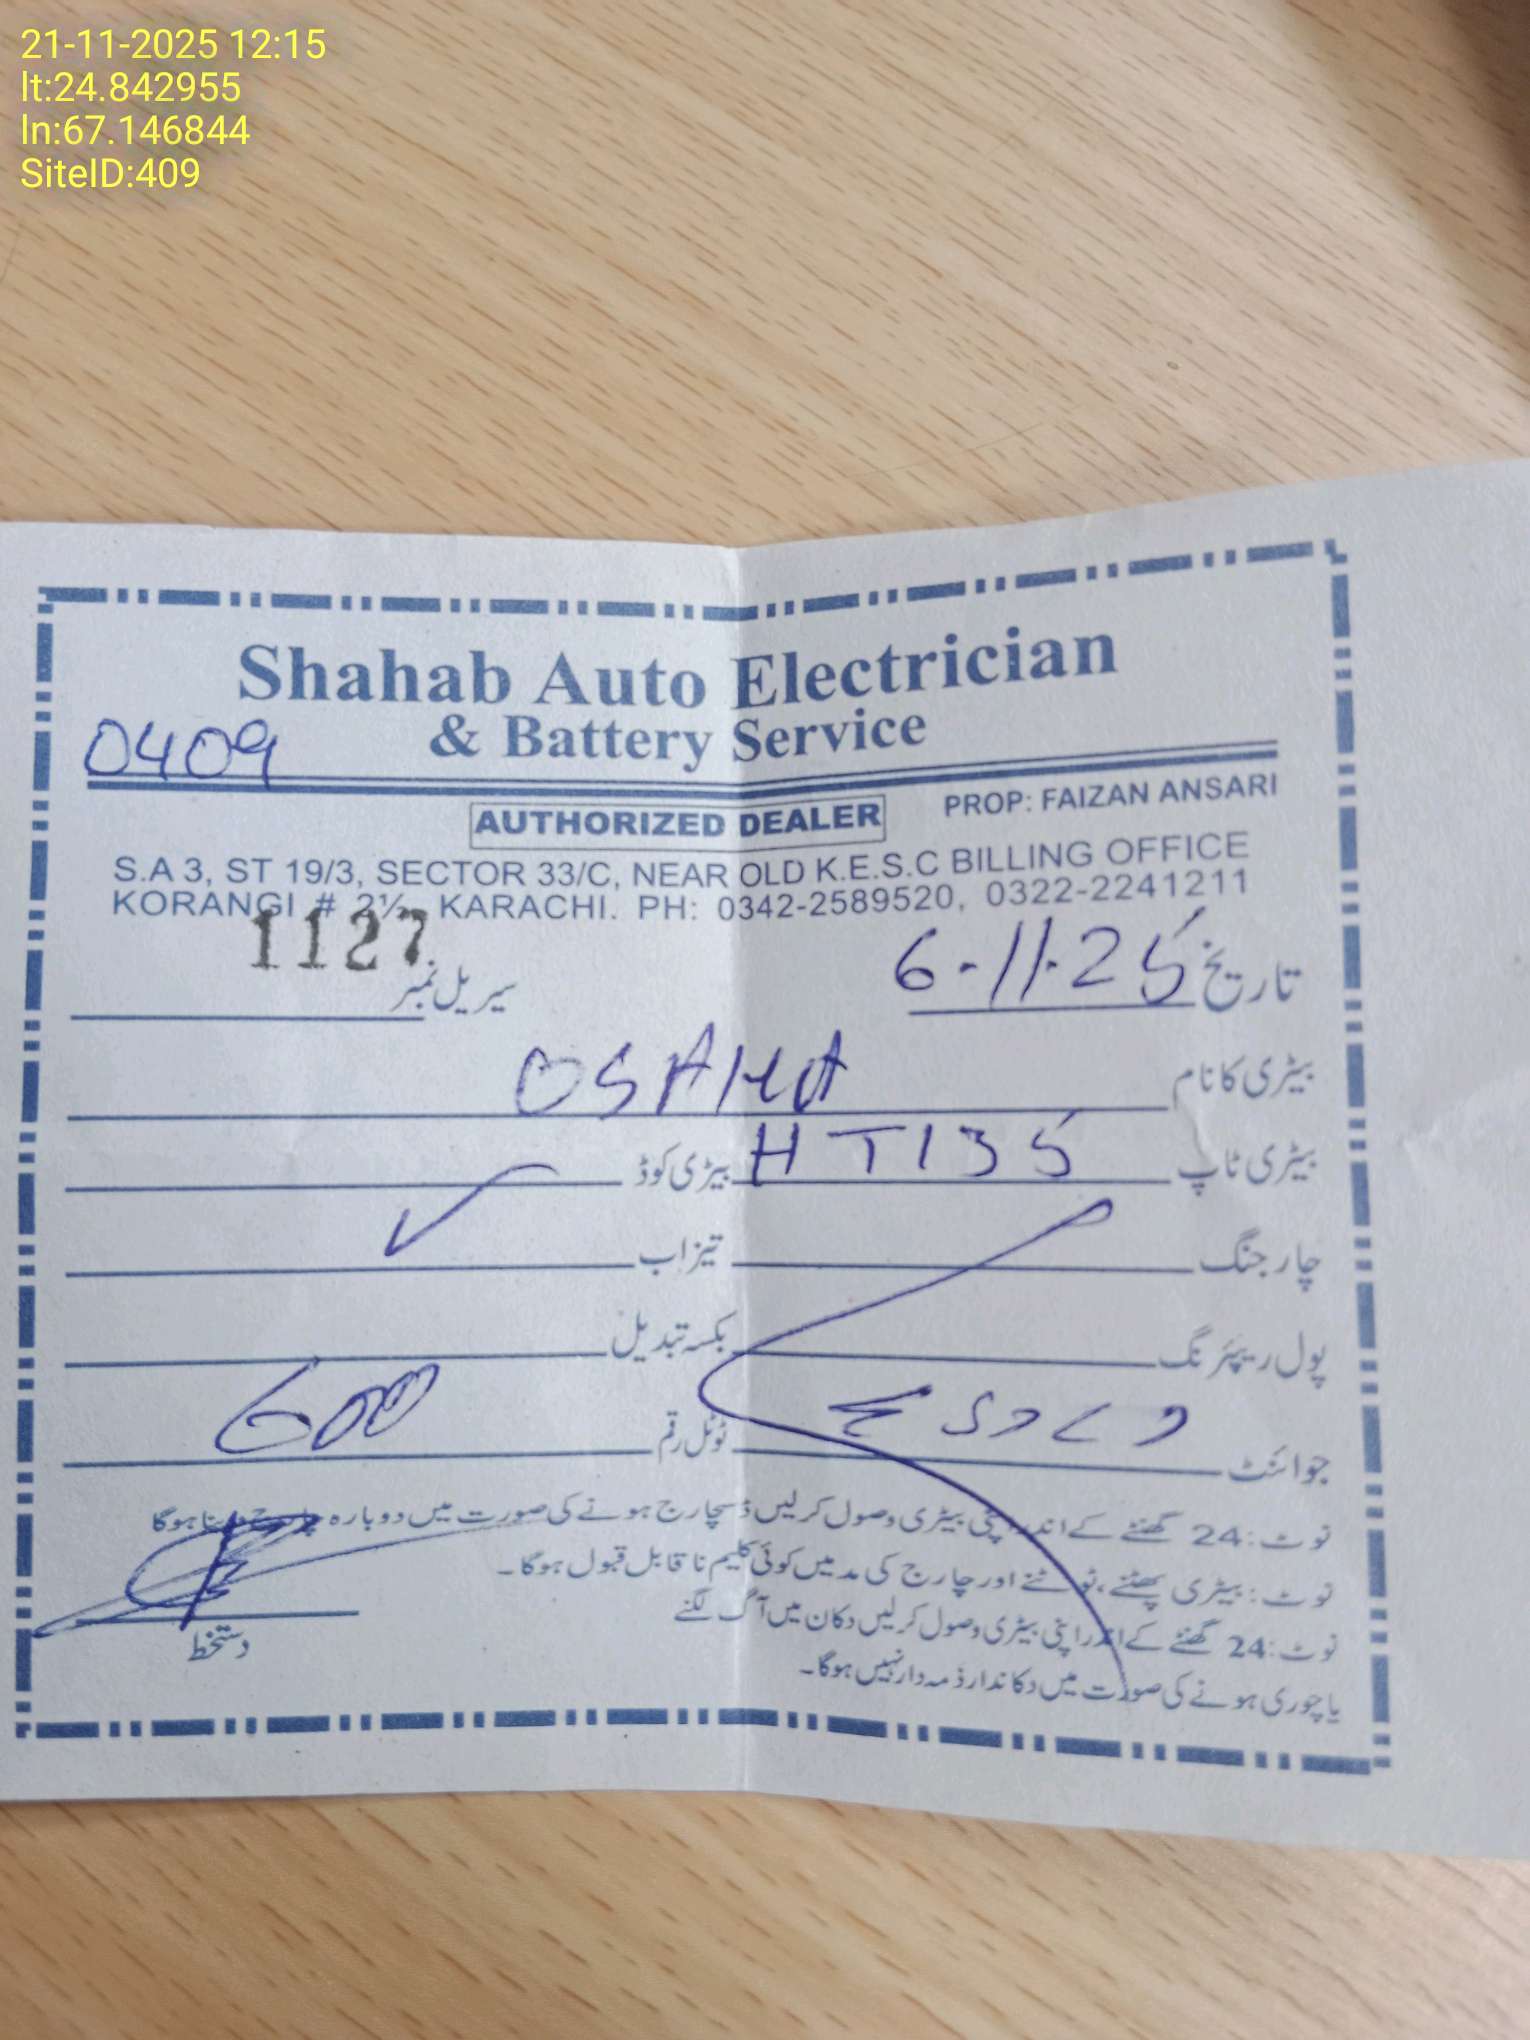 21-11-2025 12:15
lt:24.842955
ln:67.146844
SiteID:409
Shahab Auto Electrician
& Battery Service
0409
AUTHORIZED DEALER PROP: FAIZAN ANSARI
S.A 3, ST 19/3, SECTOR 33/C, NEAR OLD K.E.S.C BILLING OFFICE
KORANGI # 2½, KARACHI. PH: 0342-2589520, 0322-2241211
تاریخ 6-11-25 سیریل نمبر 1127
بیٹری کا نام OSAKA
بیٹری ٹاپ HT135 بیڑی کوڈ
چارجنگ تیزاب
پول ریپئرنگ بکسہ تبدیل
جوائنٹ ٹوٹل رقم 600
نوٹ: 24 گھنٹے کے اندر اپنی بیٹری وصول کرلیں ڈسچارج ہونے کی صورت میں دوبارہ چارج دینا ہوگا
نوٹ: بیٹری پھٹنے، ٹوٹنے اور چارج کی مد میں کوئی کلیم نا قابل قبول ہوگا۔
نوٹ: 24 گھنٹے کے اندر اپنی بیٹری وصول کرلیں دکان میں آگ لگنے
یا چوری ہونے کی صورت میں دکاندار ذمہ دار نہیں ہوگا۔
دستخط